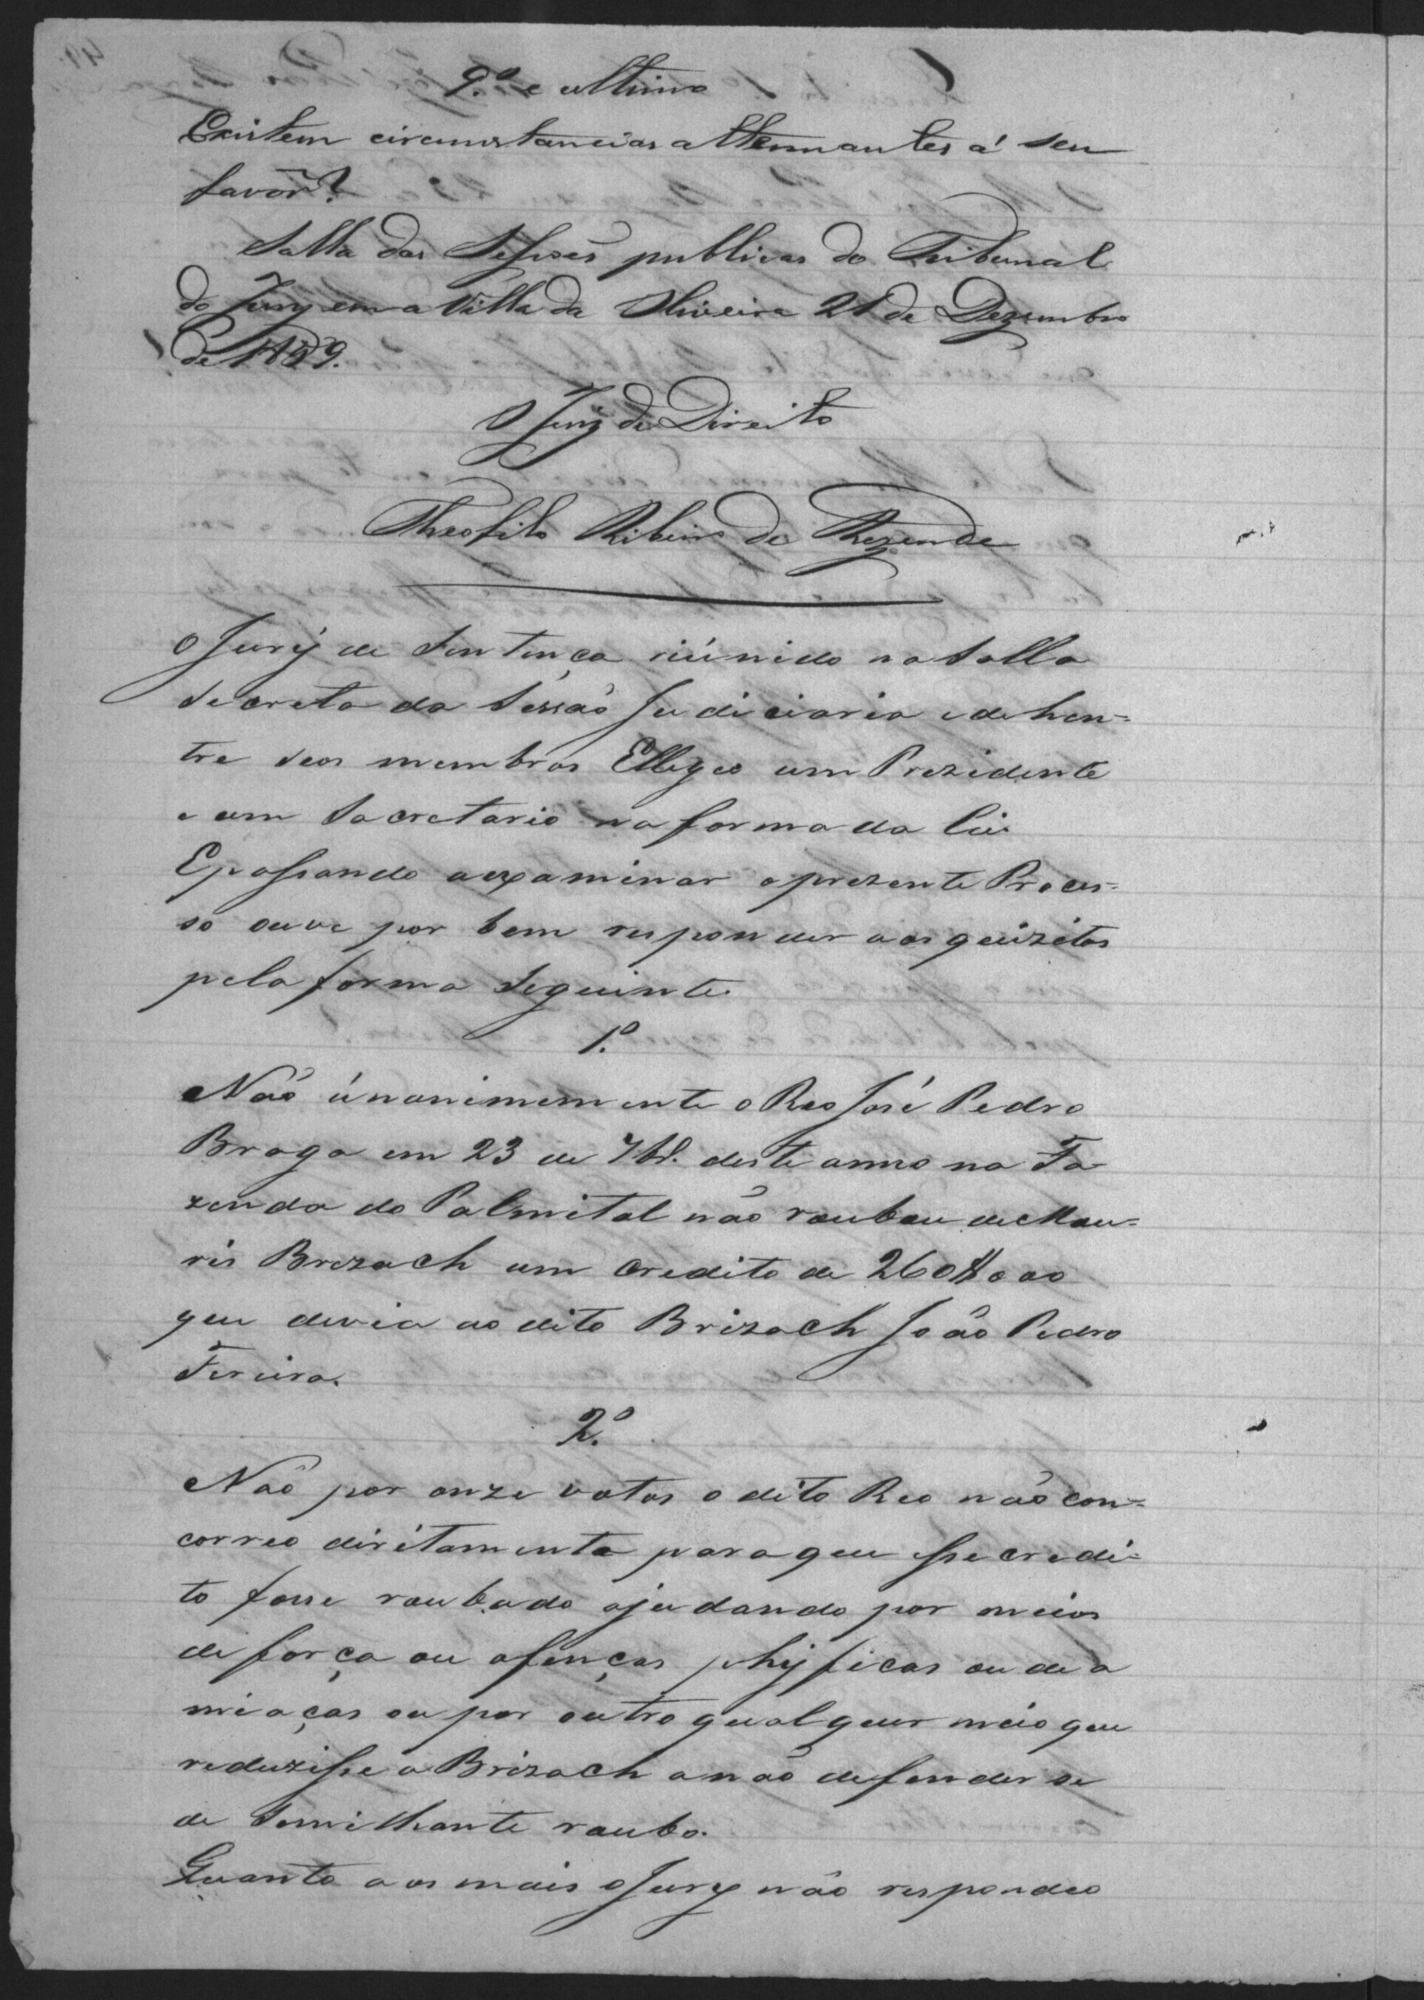 9.º e ultimo
Existem circumstancias attenuantes á seu
favor?
Salla das Sessões publicas do Tribunal
do Jury em a Villa da Oliveira 21 de Dezembro
de 1859.
O Juiz de Direito
Theofilo Ribeiro de Rezende
O Jury de Sentença riúnido na Salla
Secreta da Sessão Judiciaria e dehen-
tre seos membros Ellegeo um Prezidente
e um Sacretario na forma da lei
E passando a expaminar o prezente Proces-
so ouve por bem responder aos quizitos
pela forma Seguinte.
1.º
Não únanimemente o Reo José Pedro
Braga em 23 de 7br. deste anno na Fa
zenda do Palmital não roubou de Mau-
ris Brezach um Credito de 260$000
que devia ao dito Brizach João Pedro
Fereira.
2.º
Não por onze votos o dito Reo não con-
correo dirétamente para que esse credi-
to fosse roubado ajudando por meios
de força ou ofenças phyficas ou de a
miaças ou por outro qualquer meio que
reduzisse a Brizach a não defender se
de Semilhante roubo.
Quanto aos mais o Jury não respondeo